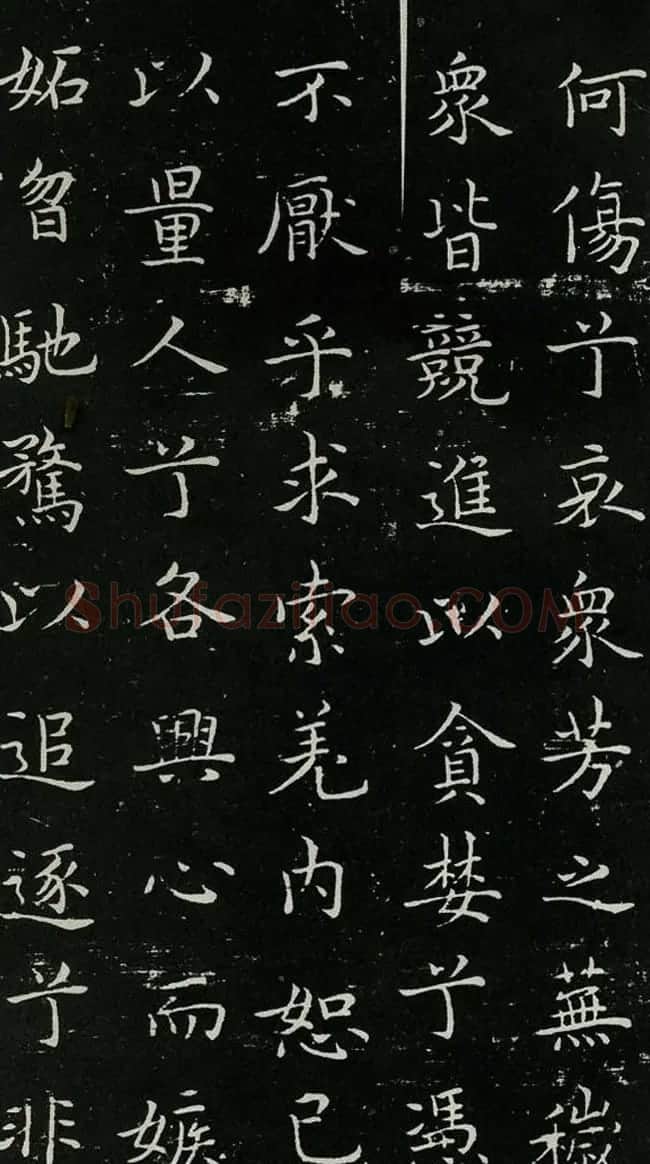 何傷兮哀衆芳之蕪穢
衆皆競進以貪婪兮馮
不厭乎求索羌内恕已
以量人兮各興心而嫉
妬曶馳騖以追逐兮非
Shufaziliao.COM